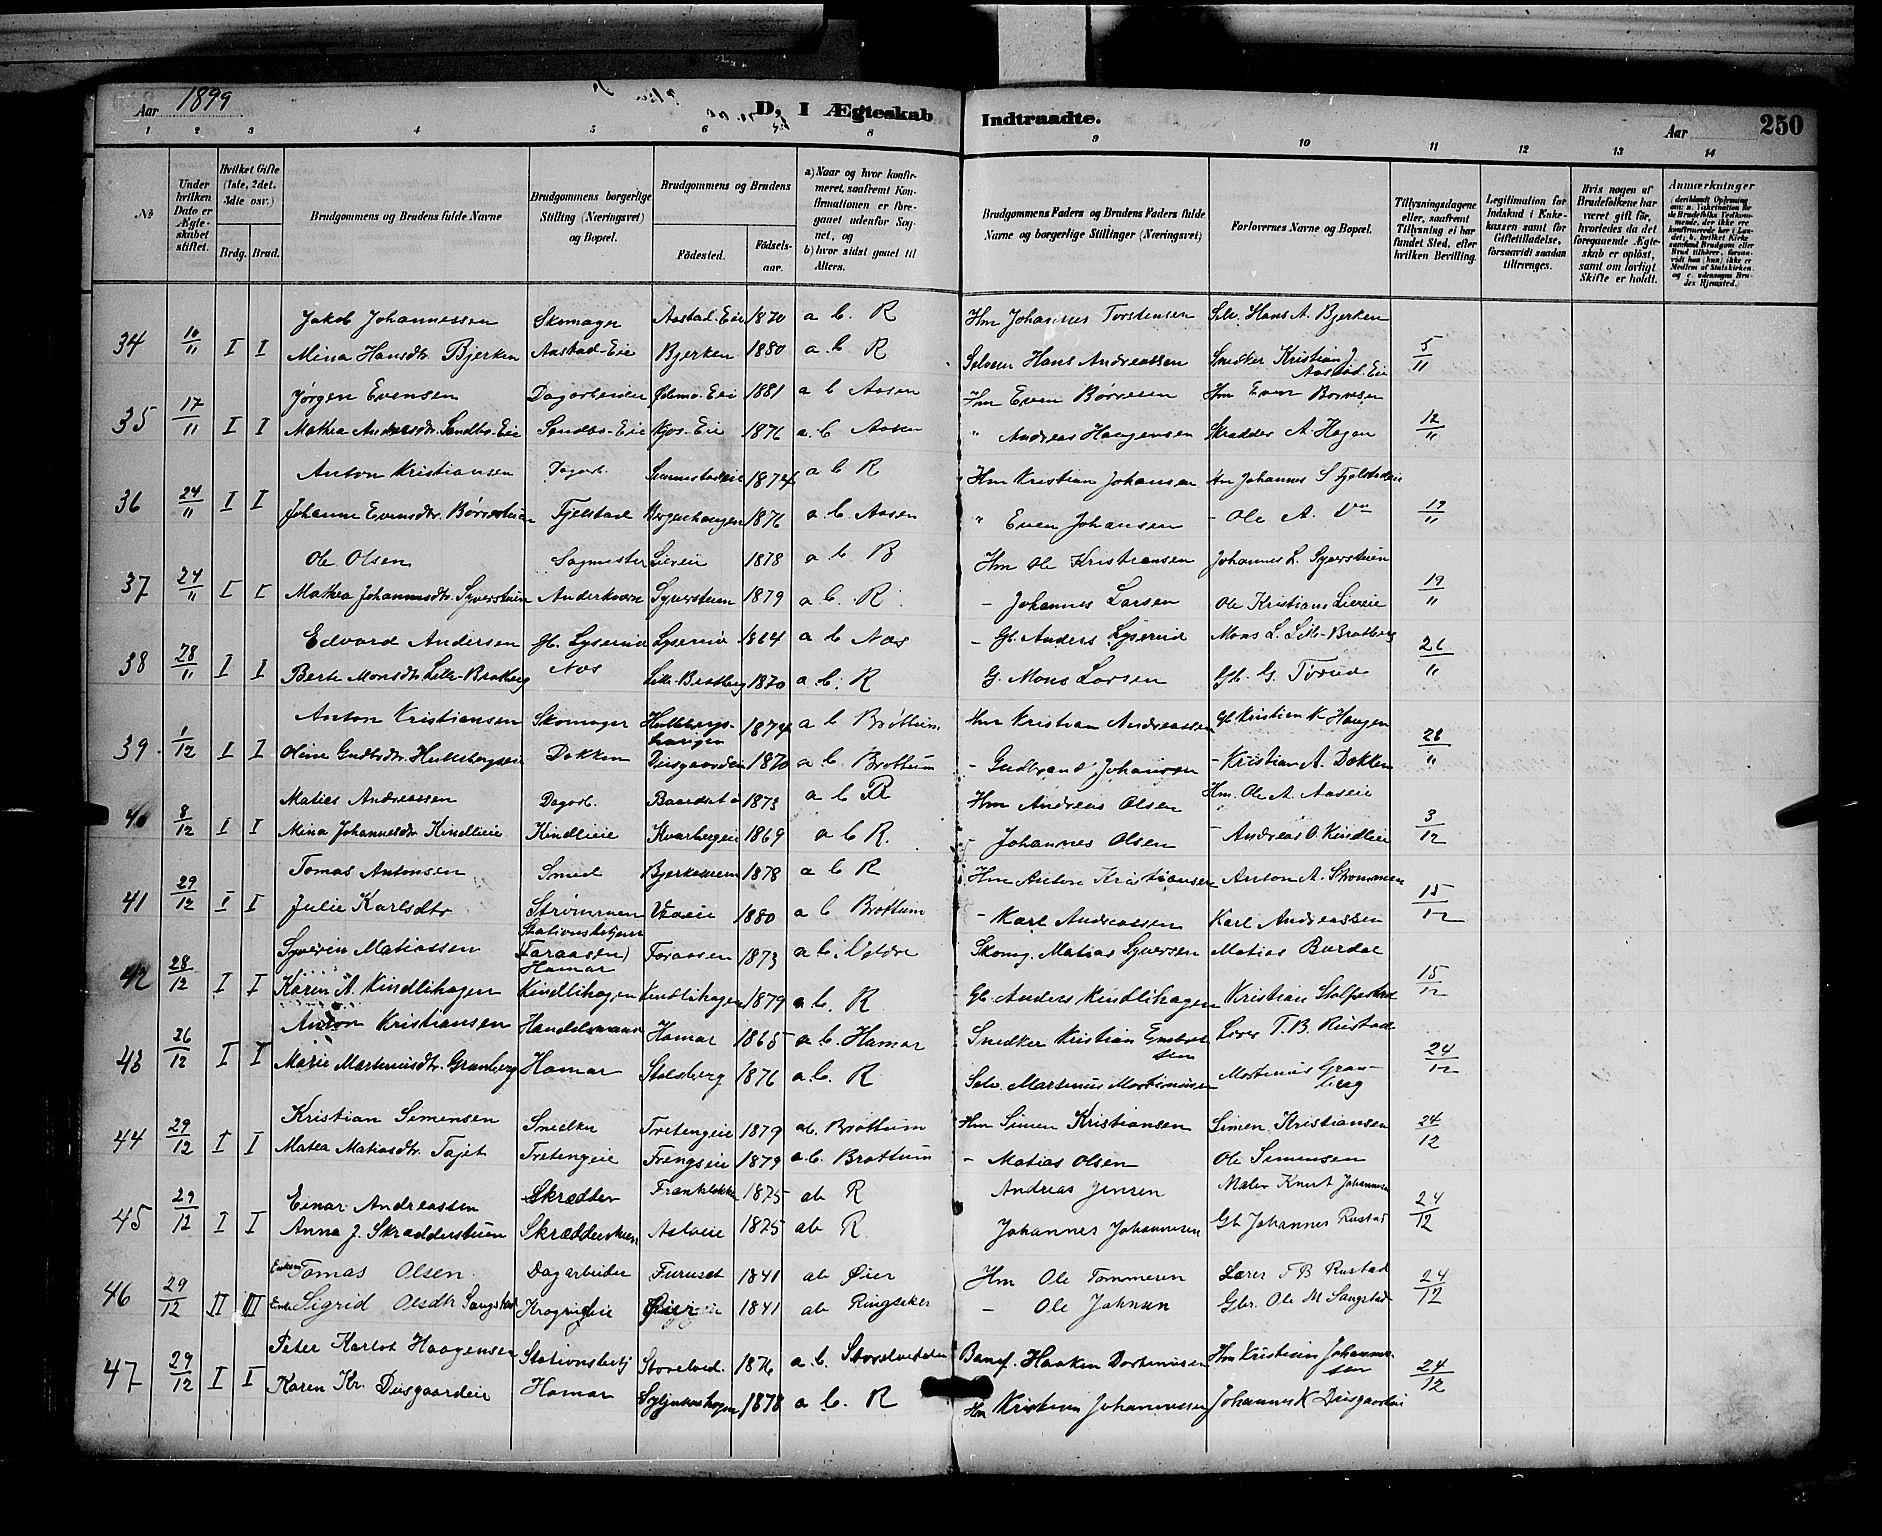 Aar 1899
D. I Ægteskab Indtraadte.
Aar 250
1 2 3 4 5 6 7 8 9 10 11 12 13 14
№
Under hvilken Dato er Ægteskabet stiftet.
Hvilket Gifte (1ste, 2det, 3die osv.)
Brdg. Brud.
Brudgommens og Brudens fulde Navne
Brudgommens borgerlige Stilling (Næringsvei) og Bopæl.
Brudgommens og Brudens
Fødested. Fødselsaar.
a) Naar og hvor konfirmeret, saafremt Konfirmationen er foregaaet udenfor Sognet, og
b) hvor sidst gaaet til Alters.
Brudgommens Faders og Brudens Faders fulde Navne og borgerlige Stillinger (Næringsvei)
Forlovernes Navne og Bopæl.
Tillysningsdagene eller, saafremt Tillysning ei har fundet Sted, efter hvilken Bevilling.
Legitimation for Indskud i Enkekassen samt for Giftetilladelse, forsaavidt saadan tiltrænges.
Hvis nogen af Brudefolkene har været gift før, hvorledes da det foregaaende Ægteskab er opløst, samt om lovligt Skifte er holdt.
Anmærkninger
34 10/11 I I Jakob Johannessen Skomager Aastad-Eie 1870 a b. R Hm Johannes Torstensen Selv. Hans A. Bjerken
Mina Hansdtr. Bjerken Aastad-Eie Bjerken 1880 a b R Selveier Hans Andreassen Snedker Kristian J. Aastad-Eie 5/11
35 17/11 I I Jørgen Evensen Dagarbeider Ødemo-Eie 1881 a b Aasen Hm Even Børresen Hm Even Børresen
Mathea Andersdtr. Sandbo-Eie Sandbo-Eie Kjos-Eie 1876 a. b Aasen " Andreas Haagensen Skrædder A. Hagen 12/11
36 24/11 I I Anton Kristiansen Dagarb. 1874 a b R Hm Kristian Johansen Hm Johannes S
Johanne Evensdtr. Børrestuen Fjelstad 1876 a. b Aasen " Even Johansen - Ole A. 19/11
37 24/11 I I Ole Olsen Sagmester Liereie 1878 a b R Hm Ole Kristiansen Johannes L. Syverstuen
Mathea Johannesdtr. Syverstuen Anderkværn Syverstuen 1879 a b. R. - Johannes Larsen Ole Kristians Liereie 19/11
38 28/11 I I Edvard Andersen Gb. Lyserud Lyserud 1864 a b Næs - Gb. Anders Lyserud Mons L. Lille-Bratberg
Berte Monsdtr Lille-Bratberg Næs Lille-Bratberg 1870 a b. R G. Mons Larsen Gb. G. Tørud 26/11
39. 1/12 I I Anton Kristiansen Skomager Hullebergshaugen 1874 a b Brøttum Hm Kristian Andreassen Gb. Kristian K. Haugen
Oline Gudbrdtr. Hullebergseie Dokken Diesgaardeie 1870 a b. Brøttum - Gudbrand Johansen - Kristian A. Dokken 26/11
40 8/12 I I Matias Andreassen Dagarb. 1873 a b R Hm Andreas Olsen Hm. Ole A. Aaseie
Mina Johannesdtr Kindlieie Kindlieie Kvarbergeie 1869 a b R. - Johannes Olsen - Andreas O. Kindlieie 3/12
41 29/12 I I Tomas Antonsen Smed 1878 a b R Hm Anton Kristiansen Anton A. Strømmen
Julie Karlsdtr Strømmen 1880 a b Brøttum - Karl Andreassen Karl Andreassen 15/12
42 28/12 I I Syverin Matiassen Stationsbetjent (Faraasen) Hamar Faraasen 1873 a b. Veldre Skomg. Matias Syversen Matias Burdal
Karen A. Kindlihagen Kindlihagen Kindlihagen 1879 a b. R Gb. Anders Kindlihagen Kristian Stolpestad 15/12
43 26/12 I I Anton Kristiansen Handelsmand Hamar 1865 a b. Hamar Snedker Kristian Lærer T. B. Rustad
Marie Martinusdtr. Granberg Hamar Stolsberg 1876 a b. R Selv. Martinus Martinusen Martinius Granberg 24/12
44 29/12 I I Kristian Simensen Snedker Tretengeie 1879 ab. Brøttum Hm Simen Kristiansen Simen Kristiansen
Matea Matiasdtr. Tajet Tretengeie Frengseie 1879 a b. Brøttum - Matias Olsen Ole Simensen 24/12
45 29/12 I I Einar Andreassen Skrædder 1875 ab R Andreas Jensen Maler Knut Johannsen
Anna J. Skrædderstuen Skrædderstuen 1875 ab R. Johannes Johannesen Gb Johannes Rustad 24/12
46 29/12 II III Enkem Tomas Olsen Dagarbeider Furuset 1841 ab Øier Hm Ole Tommesen Lærer T B Rustad
Enke Sigrid Olsdtr Saugstad 1841 ab Ringsaker - Ole Johnsen Gbr. Ole M Saugstad 24/12
47 29/12 I I Peter Karlot Haagensen Stationsbetj Storelved. 1876 a. b. Storelvedalen Banef. Haaken Hm Kristian Johannesen
Karen Kr. Diesgaardeie Hamar 1878 a b. R Hm Kristian Johannessen Johannes K Diesgaardeie 24/12